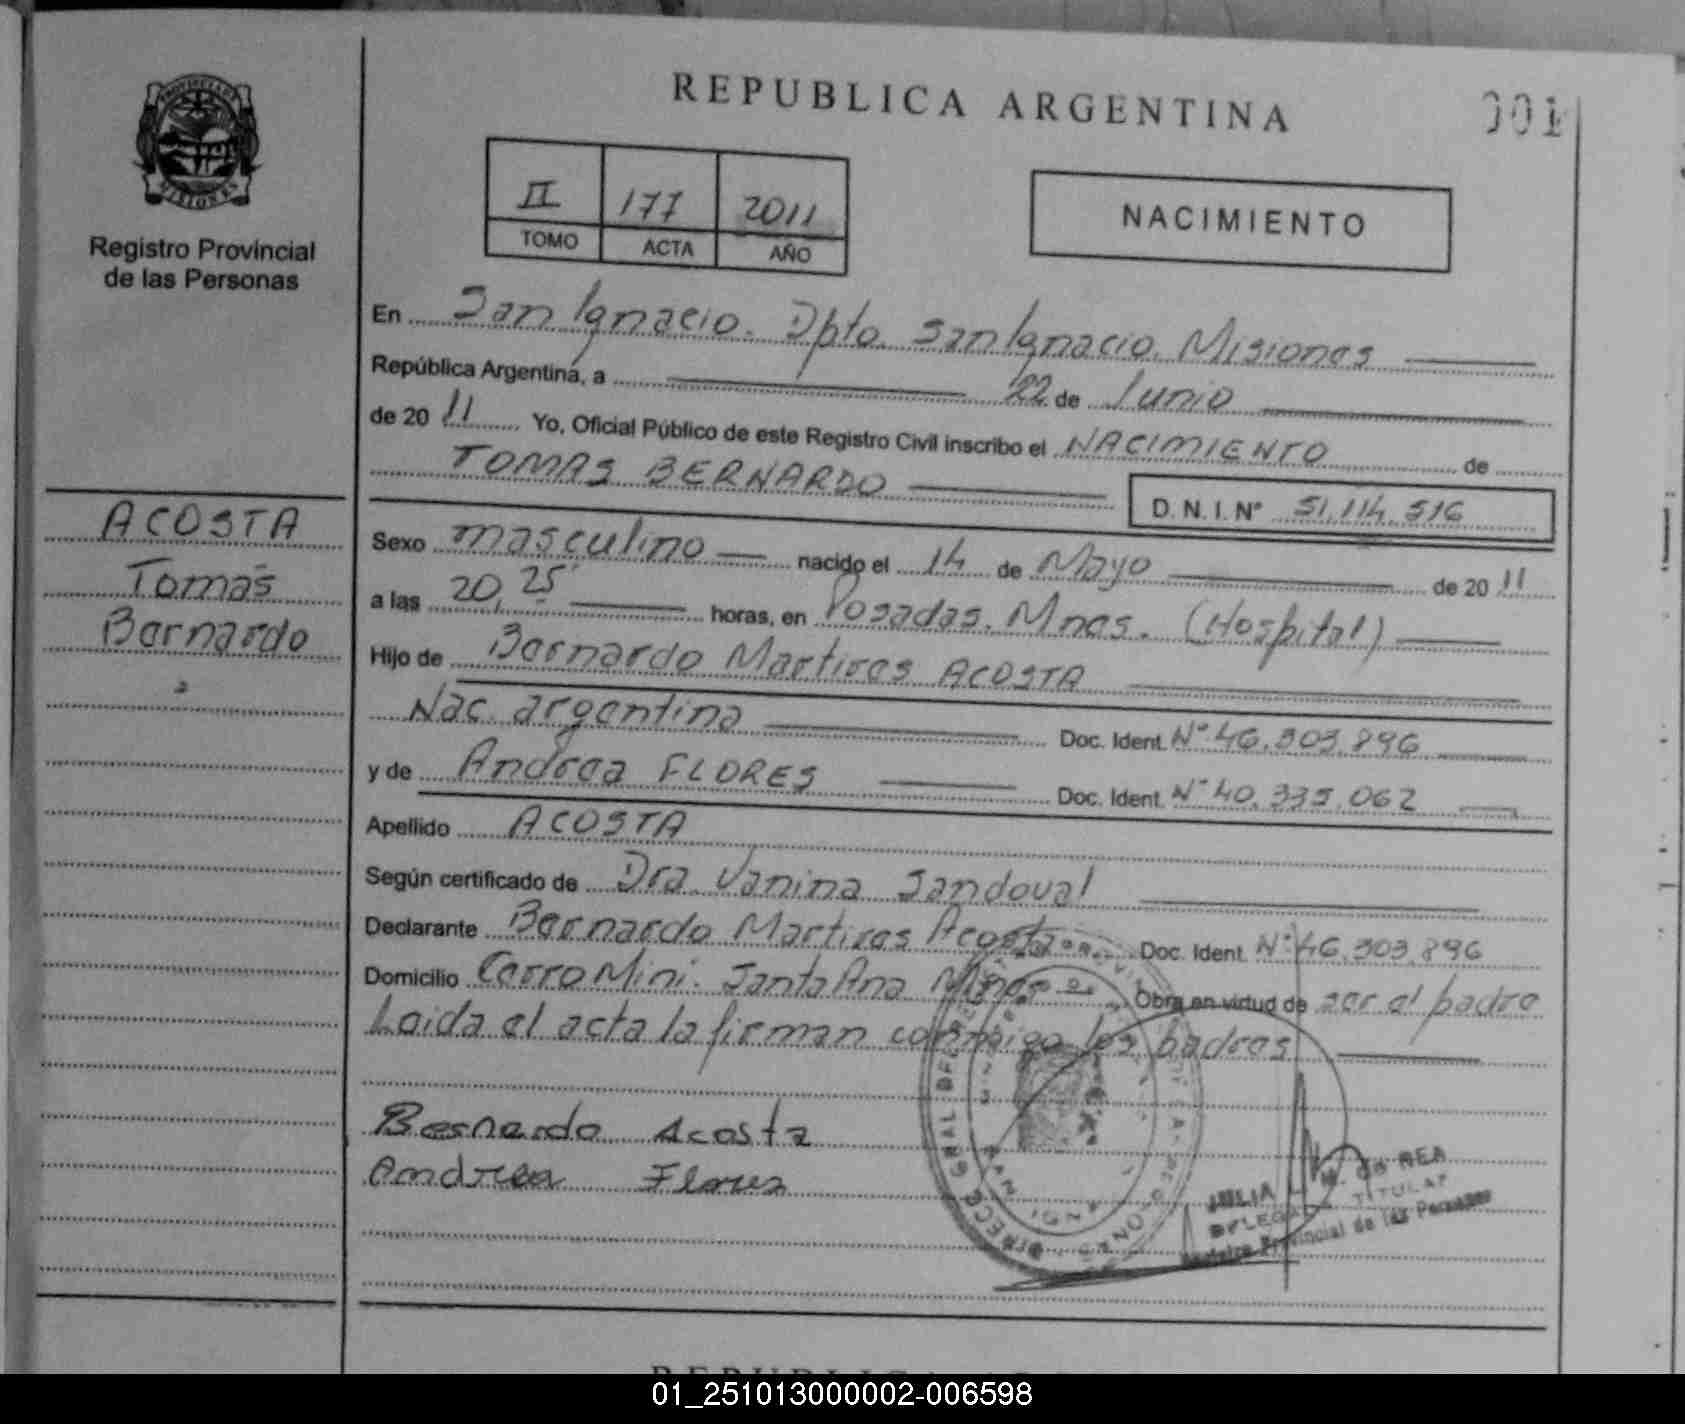 REPUBLICA ARGENTINA
001
PROVINCIA DE
MISIONES
Registro Provincial
de las Personas
II 177 2011
TOMO ACTA AÑO
NACIMIENTO
En San Ignacio. Dpto. San Ignacio. Misiones
República Argentina, a 22 de Junio
de 2011 Yo, Oficial Público de este Registro Civil inscribo el NACIMIENTO de
TOMAS BERNARDO
D. N. I. Nº 51.114.516
ACOSTA
Tomás
Bernardo
Sexo masculino nacido el 14 de Mayo de 2011
a las 20,25 horas, en Posadas. Mnes. (Hospital)
Hijo de Bernardo Martires ACOSTA
Nac. argentina Doc. Ident. Nº 46.303.896
y de Andrea FLORES Doc. Ident. Nº 40.335.062
Apellido ACOSTA
Según certificado de Dra. Vanina Sandoval
Declarante Bernardo Martires Acosta Doc. Ident. Nº 46.303.896
Domicilio Cerro Mini. Santa Ana Mnes Obra en virtud de ser el padre
Leida el acta la firman conmigo los padres
Bernardo Acosta
Andrea Flores
JULIA M. de REA
DELEGADA TITULAR
Registro Provincial de las Personas
01_251013000002-006598